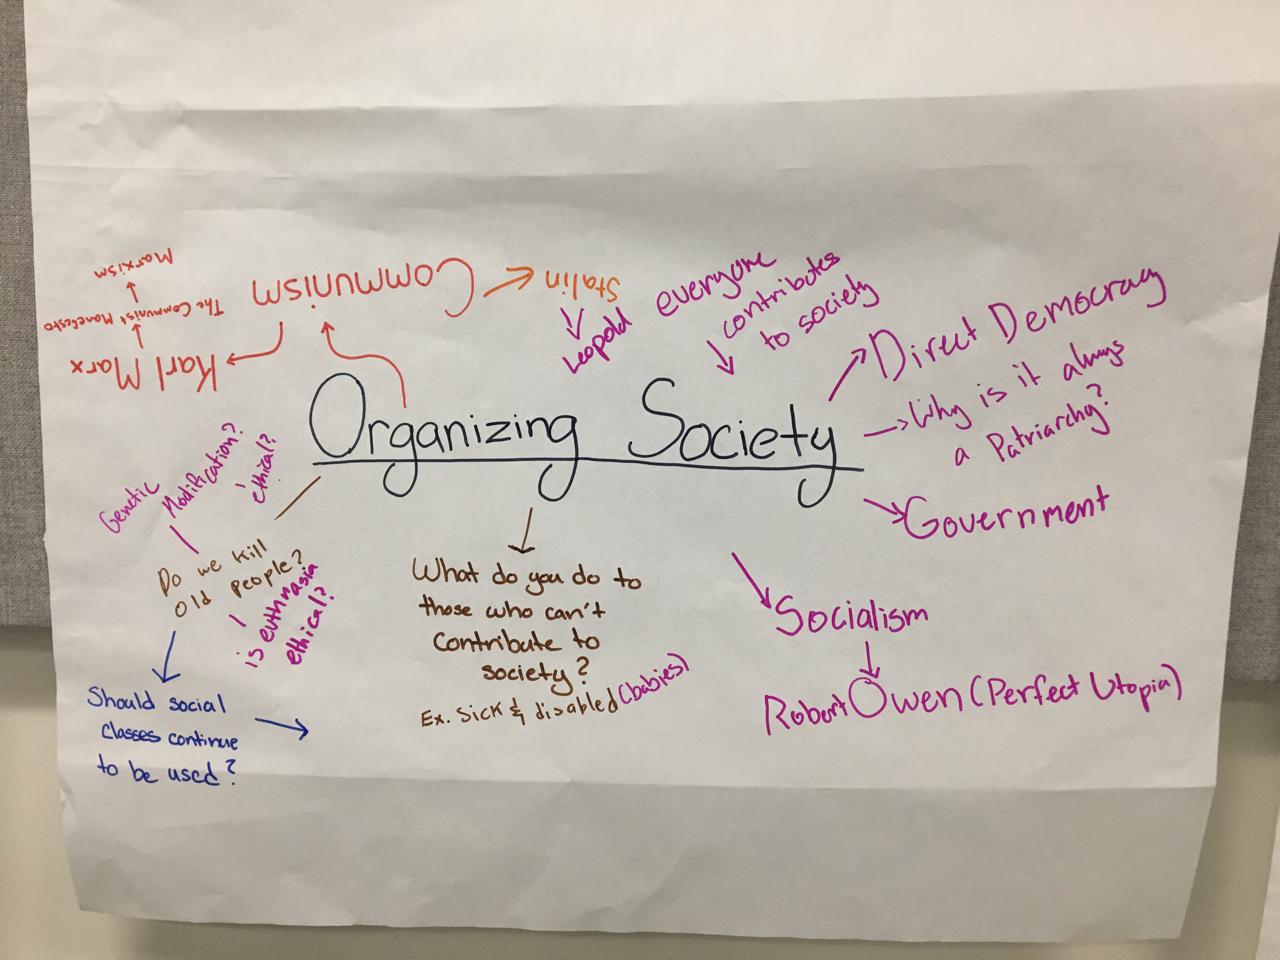 Organizing Society
Communism
Stalin
Leopold
Karl Marx
The Communist Manefesto
Marxism
everyone
contributes
to society
Direct Democracy
Why is it always
a Patriarchy?
Government
Socialism
Robert Owen (Perfect Utopia)
What do you do to
those who can't
contribute to
society?
Ex. Sick & disabled (babies)
Genetic
Modification?
ethical?
Do we kill
old people?
is euthnasia
ethical?
Should social
classes continue
to be used?